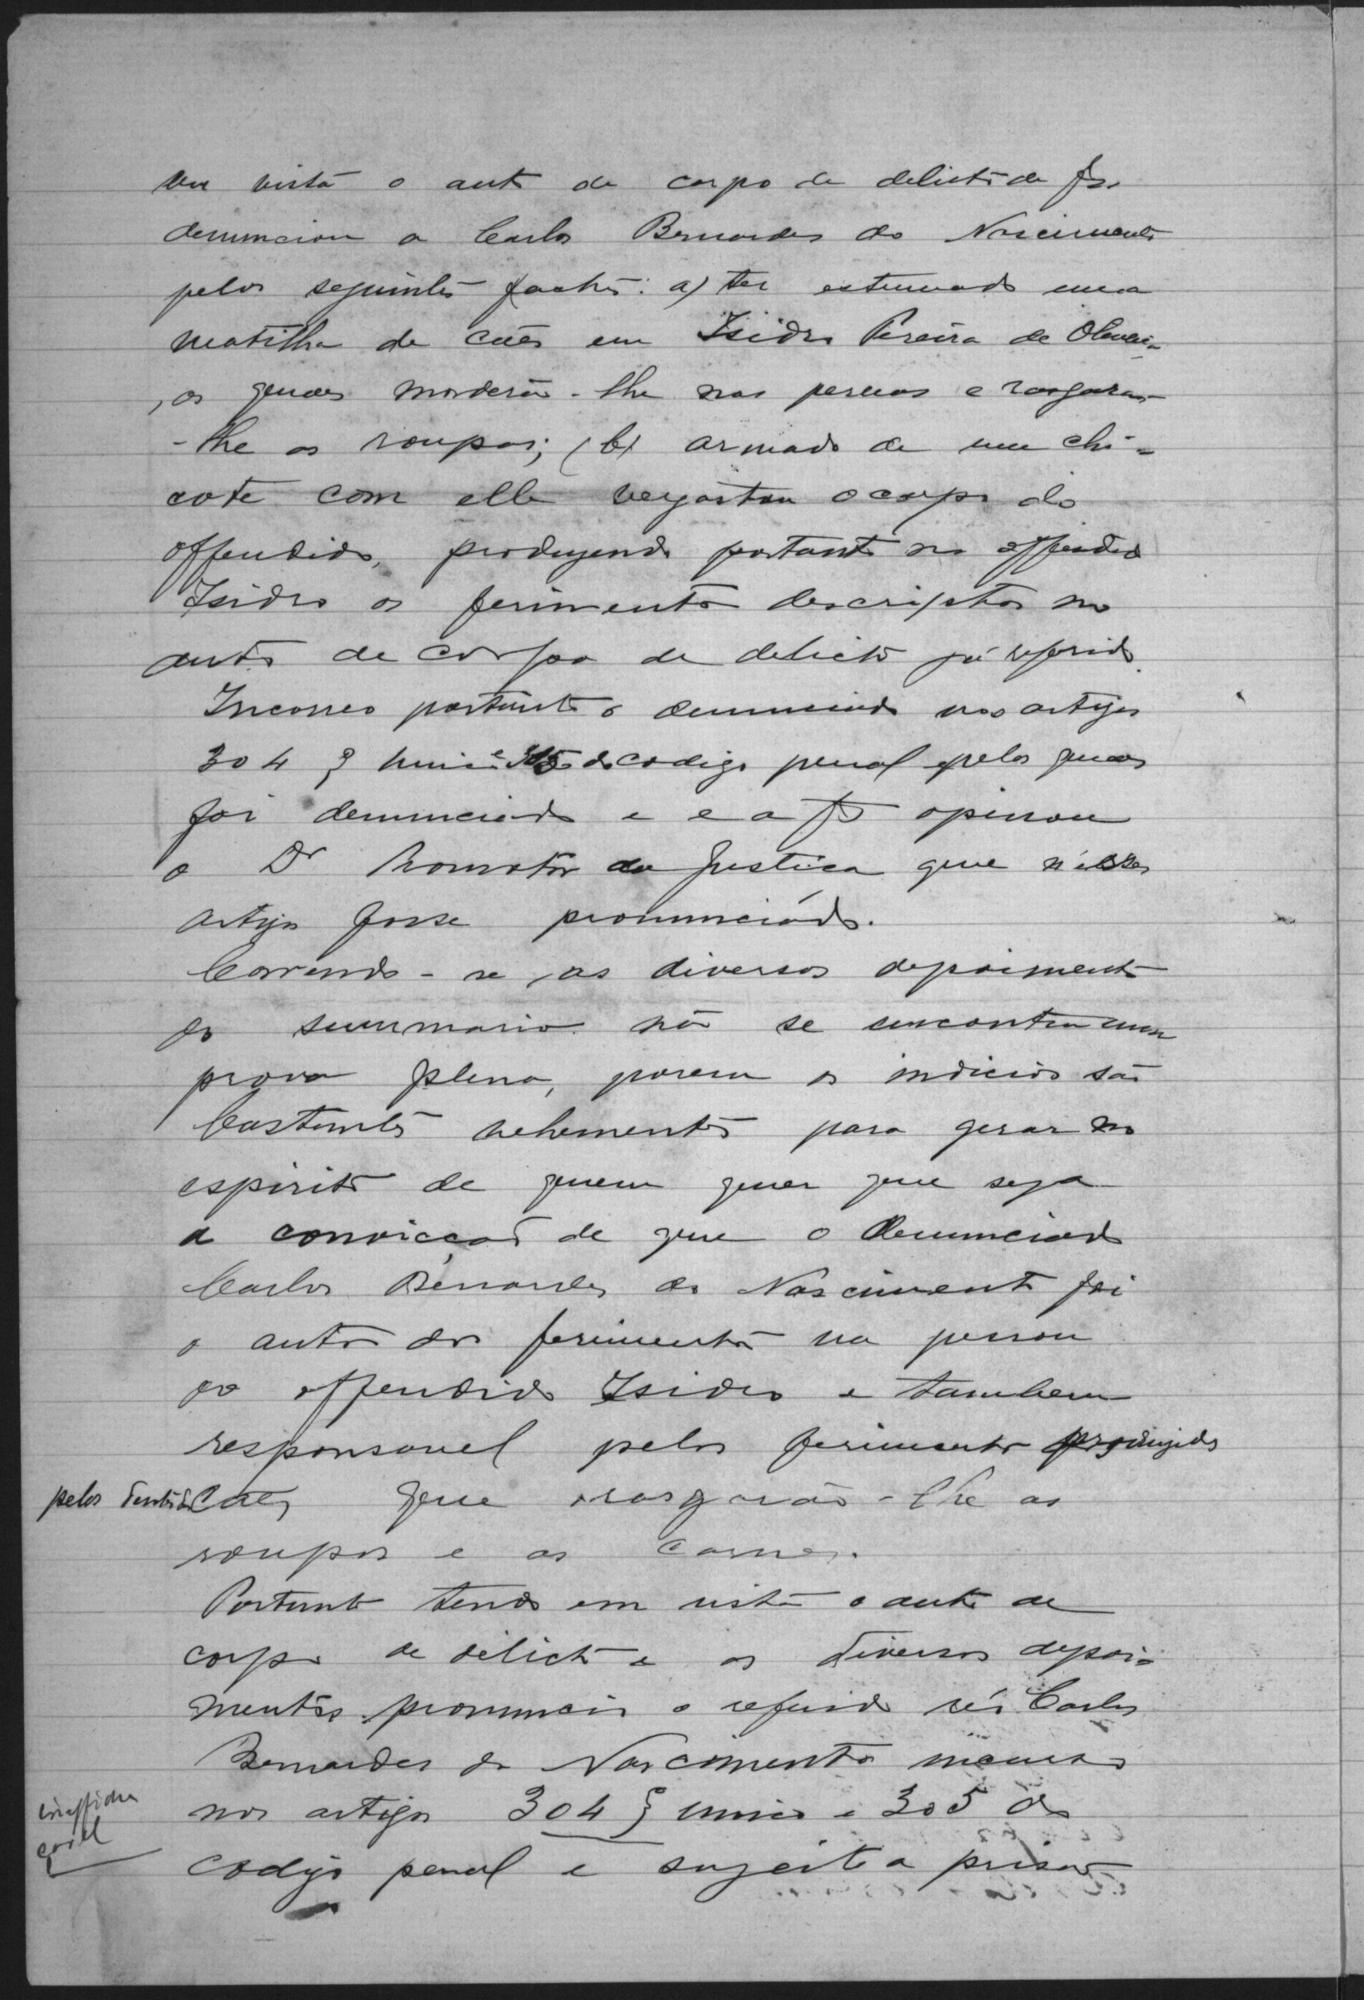 em vista o auto de corpo de delicto de fs.
denunciou a Carlos Bernardes do Nascimento
pelos seguintes factos: a) ter estumado uma
matilha de cães em Isidro Pereira de Oliveira
, os quaes morderão-lhe nas pernas e rasgaram-
-lhe as roupas; (b) armado de um chi-
cote com elle vergastou o corpo do
offendido, produzindo portanto no offendido
Isidro os ferimentos descriptos no
auto de corpo de delicto já referido.
Incorreo portanto o denunciado nos artigos
304 § unico e 305 do codigo penal pelos quaes
foi denunciado e a fs opinou
o Dr Promotor da Justiça que n'esses
artigos fosse pronunciado.
Correndo-se os diversos depoimentos
do summario não se encontra uma
prova plena, porem os indicios são
bastantes vehementes para gerar no
espirito de quem quer que seja
a convicção de que o denunciado
Carlos Bernardes do Nascimento foi
o autor dos ferimentos na pessoa
do offendido Isidro e tambem
responsavel pelos ferimentos produzidos
pelos cães que rasgarão-lhe as
roupas e as carnes.
Portanto tendo em vista o auto de
corpo de delicto e os diversos depoi-
mentos pronuncio o referido réo Carlos
Bernardes do Nascimento incurso
nos artigos 304 § unico e 305 do
codigo penal e sujeito a prisão